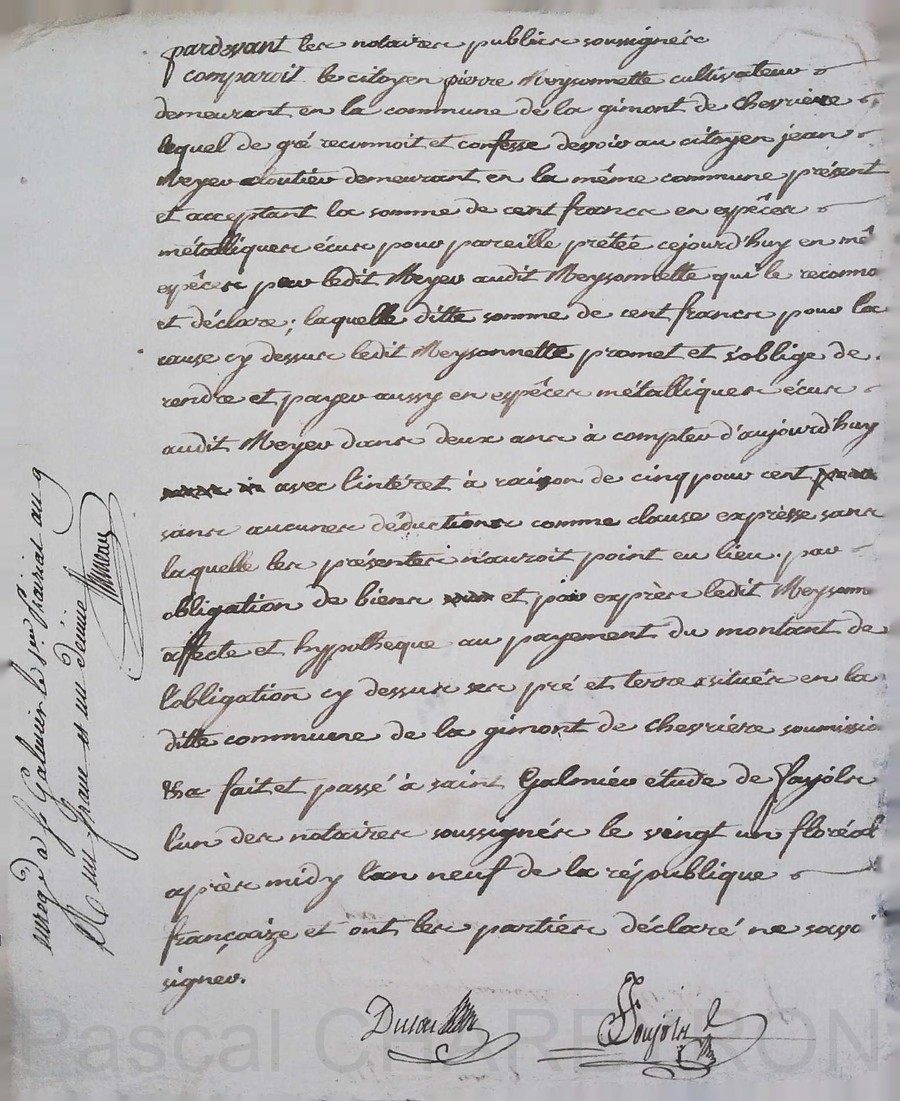 pardevant les notaires publics soussignés
comparoit le citoyen pierre Meysonnette cultivateur
demeurant en la commune de la gimont de chevrière
lequel de gré reconnoit et confesse devoir au citoyen jean
Meyer demeurant en la même commune présent
et acceptant la somme de cent francs en espêces
métalliques écus pour pareille prétée cejourd'huy en mê
espêces par ledit Meyer audit Meysonnette qui le reconno
et déclare; laquelle ditte somme de cent francs pour la
cause cy dessus ledit Meysonnette promet et s'oblige de
rendre et payer aussy en espêces métalliques écus
audit Meyer dans deux ans à compter d'aujourd'huy
avec l'intéret à raison de cinq pour cent
sans aucunes déductions comme clause expresse sans
laquelle les présentes n'auroit point eu lieu. par
obligation de biens et par exprès ledit Meysonn
affecte et hypotheque au payement du montant de
l'obligation cy dessus ses pré et terre situés en la
ditte commune de la gimont de chevrière soumissio
&a fait et passé à saint Galmier etude de fayolle
l'un des notaires soussignés le vingt un floréal
après midy l'an neuf de la république
françaize et ont les parties déclaré ne savoi
signer.
enregé à st Galmier le 1er prairial an 9
Rç un franc et un décime
Pascal CHAMBRON